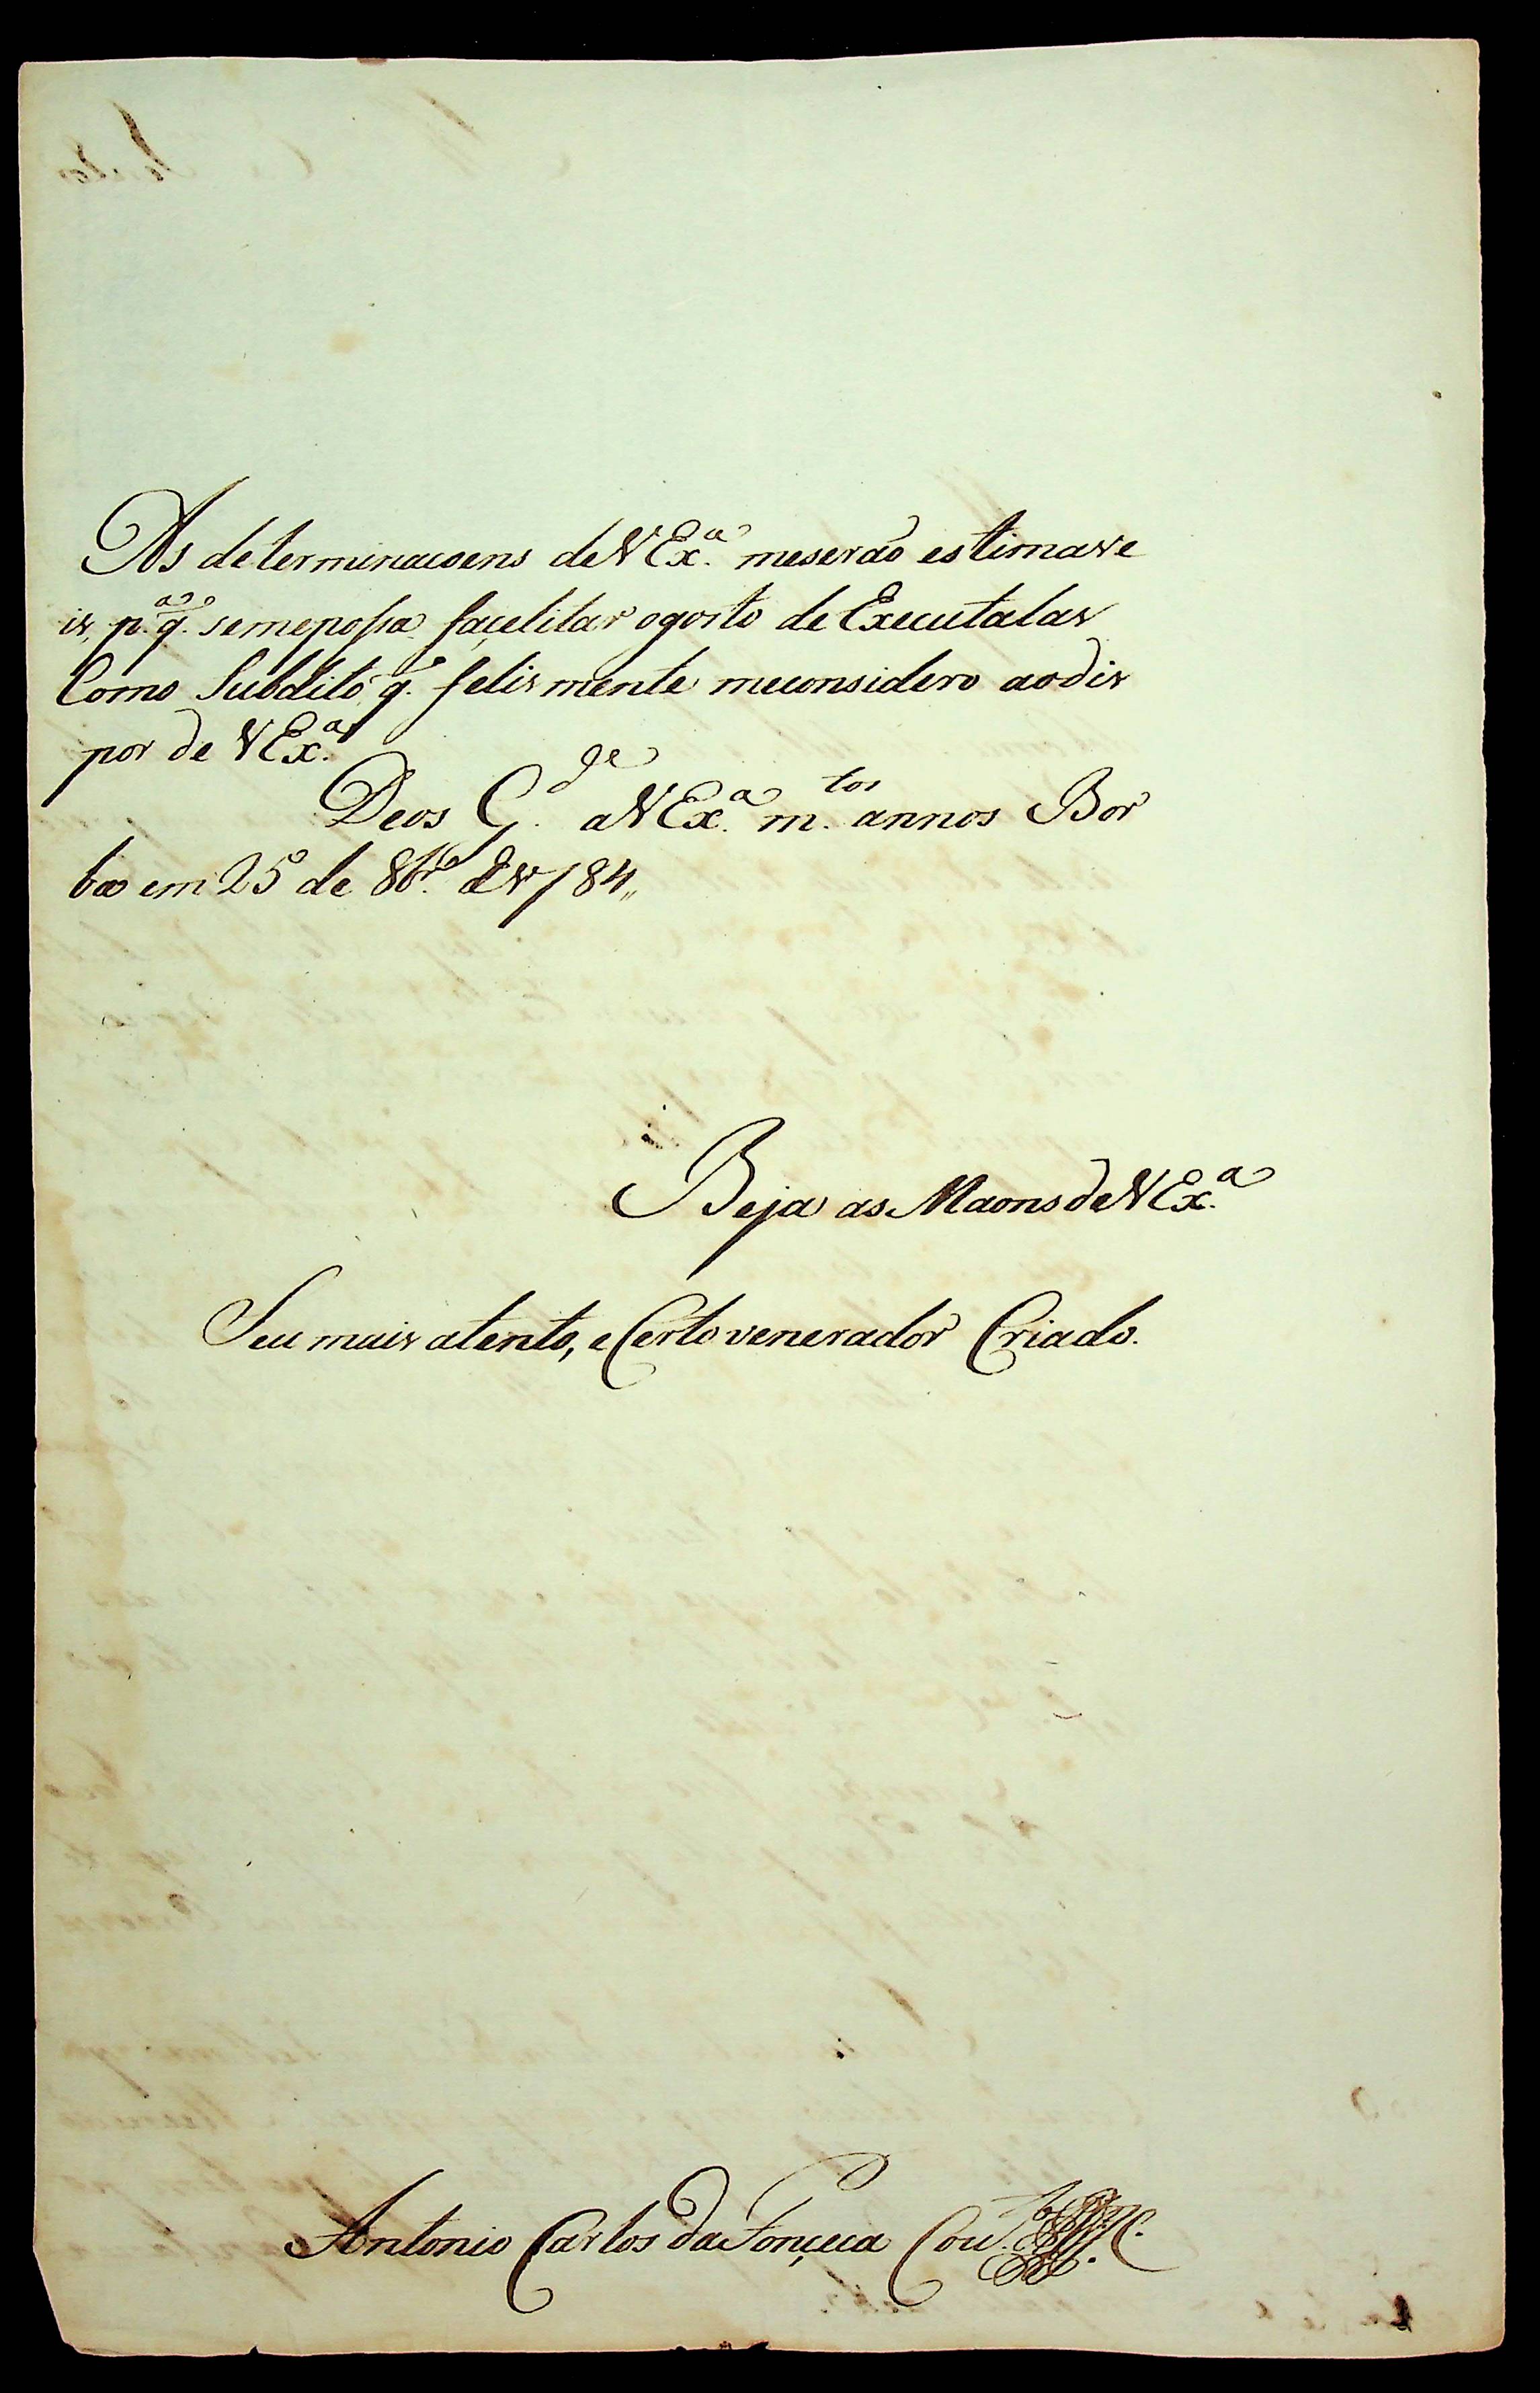 As determinacoens de V Ex.ª meserão estimave
is, p.ª q.º semepossa façelitar ogosto de Executalas
Como Subdito q.º felismente meconsidero aodis
por de V Ex.ª
Deos G.de a V Ex.ª m.tos annos Bor
ba em 25 de 8br.º de 1784,,
Beja as Maons de V Ex.ª
Seu mais atento, e Certo venerador Criado.
Antonio Carlos da Fonçeca Cou.